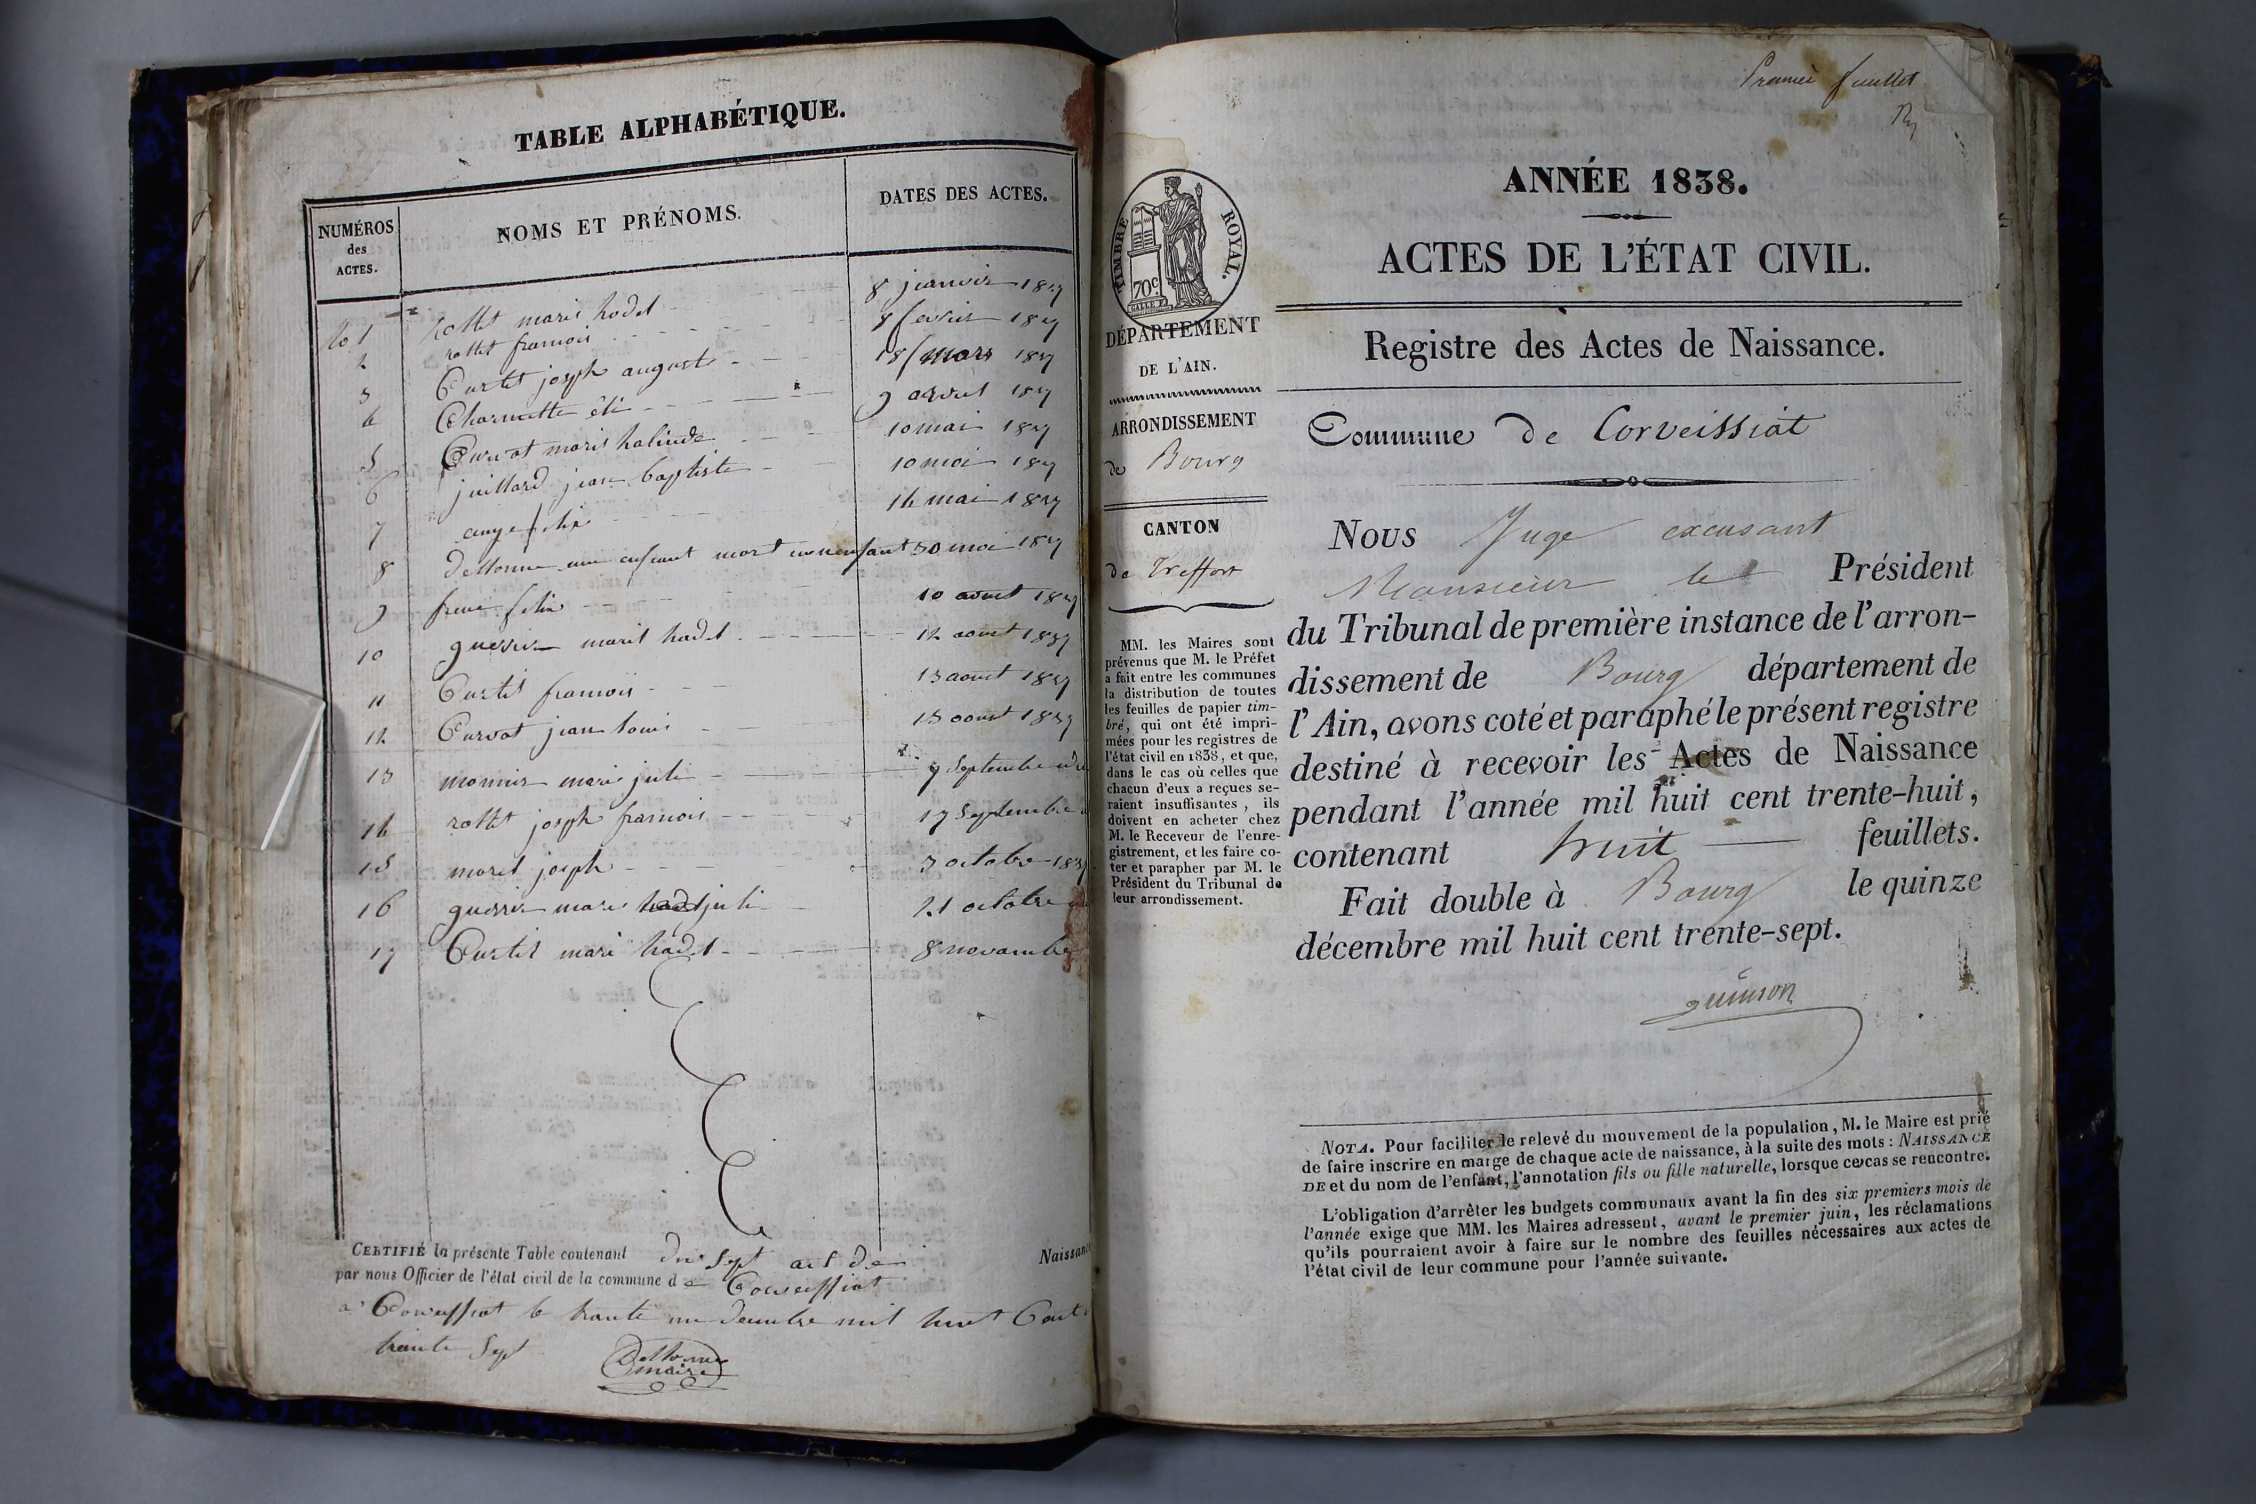 TABLE ALPHABÉTIQUE.
NUMÉROS des ACTES.
NOMS ET PRÉNOMS.
DATES DES ACTES.
1 rollet marie 8 janvier 1837
2 rollet francois 8 fevrier 1837
3 Curtet joseph auguste 18 mars 1837
4 Charnette 9 avril 1837
5 Curvat marie 10 mai 1837
6 juillard jean baptiste 10 mai 1837
7 felix 14 mai 1837
8 dellonne un enfant mort 30 mai 1837
9 felix 10 aout 1837
10 guerrin marie 12 aout 1837
11 Curtet francois 13 aout 1837
12 Curvat jean louis 15 aout 1837
13 monnier marie julie 9 Septembre
14 rollet joseph francois 17 Septembre
15 morel joseph 3 octobre 1837
16 guerrin marie julie 21 octobre
17 Curtet marie 8 novembre
CERTIFIÉ la présente Table contenant dix Sept act de Naissance
par nous Officier de l'état civil de la commune de Corveissiat
a Corveissiat le trente un decembre mil huit Cent
trente Sept
maire
Premier feuillet
ANNÉE 1838.
ACTES DE L'ÉTAT CIVIL.
Registre des Actes de Naissance.
Commune de Corveissiat
TIMBRE ROYAL.
70c.
DÉPARTEMENT
DE L'AIN.
ARRONDISSEMENT
de Bourg
CANTON
de Treffort
MM. les Maires sont
prévenus que M. le Préfet
a fait entre les communes
la distribution de toutes
les feuilles de papier tim-
bré, qui ont été impri-
mées pour les registres de
l'état civil en 1838, et que,
dans le cas où celles que
chacun d'eux a reçues se-
raient insuffisantes, ils
doivent en acheter chez
M. le Receveur de l'enre-
gistrement, et les faire co-
ter et parapher par M. le
Président du Tribunal de
leur arrondissement.
Nous Juge excusant
Monsieur le Président
du Tribunal de première instance de l'arron-
dissement de Bourg département de
l'Ain, avons coté et paraphé le présent registre
destiné à recevoir les Actes de Naissance
pendant l'année mil huit cent trente-huit,
contenant huit feuillets.
Fait double à Bourg le quinze
décembre mil huit cent trente-sept.
NOTA. Pour faciliter le relevé du mouvement de la population, M. le Maire est prié
de faire inscrire en marge de chaque acte de naissance, à la suite des mots : NAISSANCE
DE et du nom de l'enfant, l'annotation fils ou fille naturelle, lorsque ce cas se rencontre.
L'obligation d'arrêter les budgets communaux avant la fin des six premiers mois de
l'année exige que MM. les Maires adressent, avant le premier juin, les réclamations
qu'ils pourraient avoir à faire sur le nombre des feuilles nécessaires aux actes de
l'état civil de leur commune pour l'année suivante.